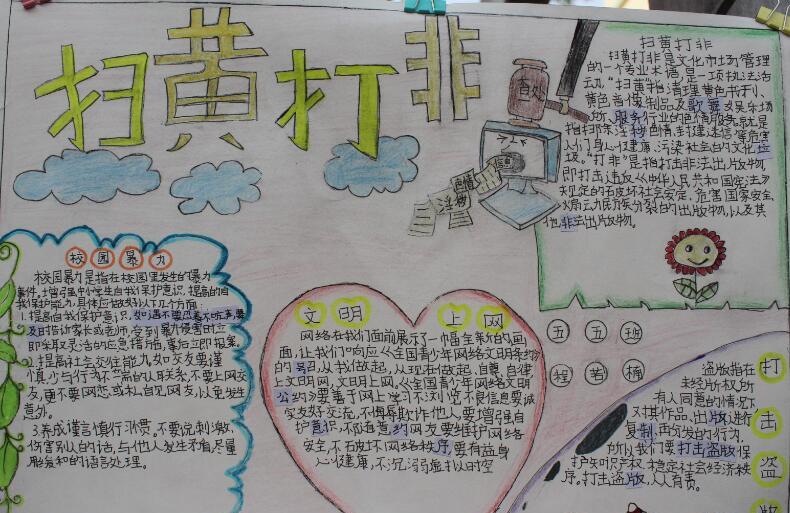 扫黄打非
查处
信息
色情
淫秽
扫黄打非
扫黄打非是文化市场管理
的一个专业术语,是一项执法活
动。“扫黄”指清理黄色书刊、
黄色音像制品及歌舞娱乐场
所、服务行业的色情服务,就是
指扫除淫秽色情,封建迷信等危害
人们身心健康、污染社会的文化垃
圾。“打非”是指打击非法出版物,
即打击违反《中华人民共和国宪法》
规定的石皮坏社会安定、危害国家安全、
煽动民族分裂的出版物,以及其
他非法出版物。
校园暴力
校园暴力是指在校园里发生的暴力
事件,增强中小学生自我保护意识,提高的自
我保护能力,具体应做好以下几个方面
1.提高自我保护意识,如遇不要忍着不吭声,要
及时告诉家长或老师,受到暴力侵害时立
即采取灵活的应急措方面,事后立即报案。
2.提高社会交往能力如交友要谨
慎,少与行为不
的人联系,不要上网交
友,更不要网恋或私自见网友,以免发生
意外。
3.养成谨言慎行习惯。不要说刺激、
伤害别人的话,与他人发生矛盾尽量
用缓和的语言处理。
文明上网
网络在我们面前展示了一幅全新的画
面,让我们响应《全国青少年网络文明公约》
的号召,从我做起,从现在做起,自尊,自律,
上文明网,文明上网。《全国青少年网络文明
公约》要善于网上学习不浏览不良信息要诚
实友好交流,不侮辱欺诈他人,要增强自
护意识,不随意约网友要维护网络
安全,不石皮坏网络秩序,要有益身
心健康,不沉溺虚拟时空
五五班
程若楠
打击盗版
盗版指在
未经版权所
有人同意的情况下
对其作品、出版进行
复制,再分发的行为,
所以我们要打击盗版保
护知识产权,稳定社会经济秩
序。打击盗版,人人有责。